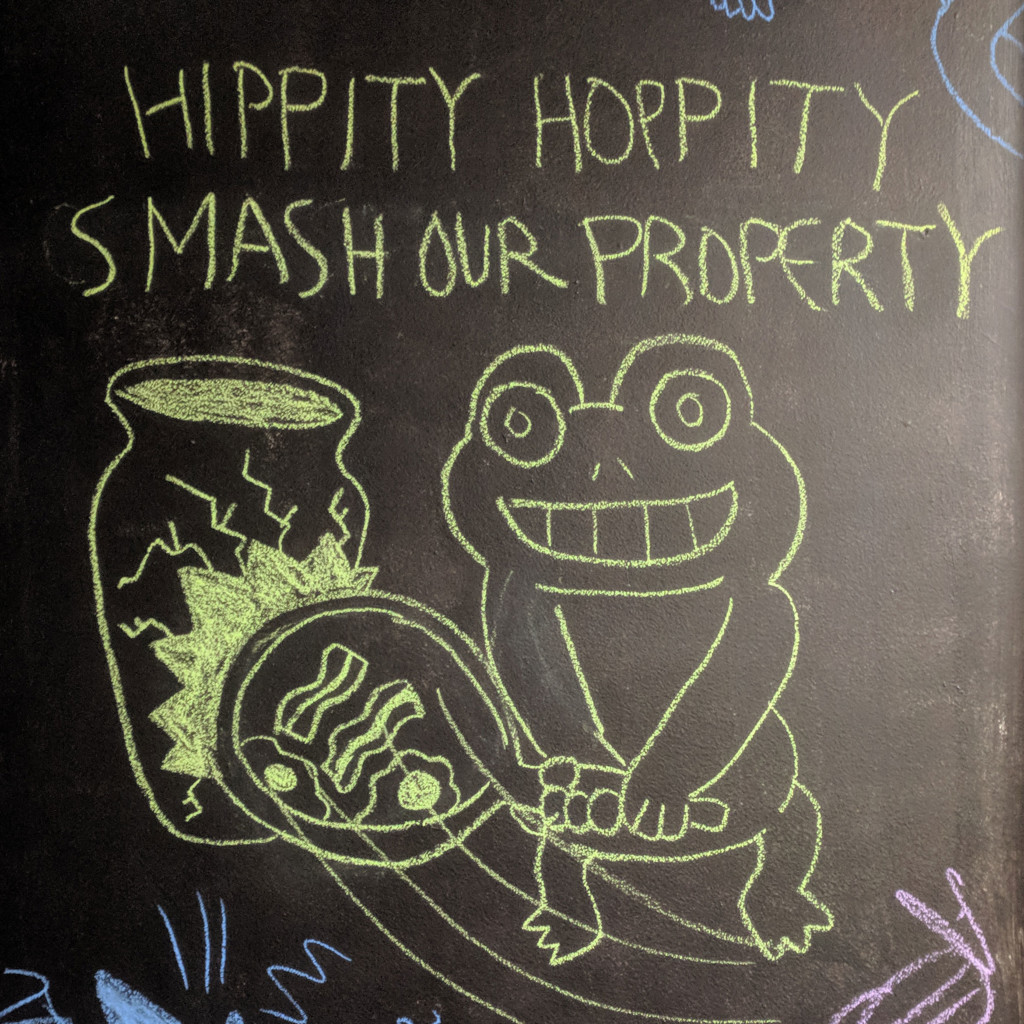 HIPPITY HOPPITY
SMASH OUR PROPERTY